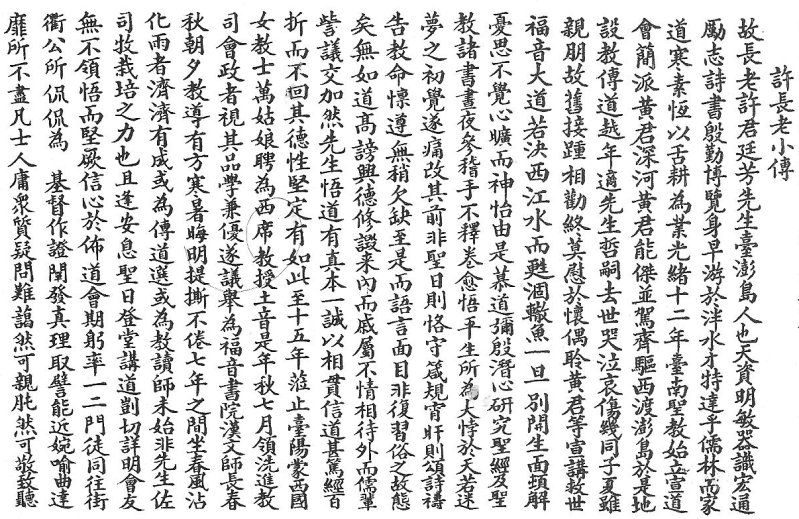 許長老小傳
故長老許君廷芳先生臺澎島人也天資明敏器識宏通
勵志詩書殷勤博覽身早游於泮水才特達乎儒林而家
道寒素恆以舌耕為業光緒十二年臺南聖教始立宣道
會簡派黃君深河黃君能傑並駕齊驅西渡澎島於是地
設教傳道越年適先生哲嗣去世哭泣哀傷幾同子夏雖
親朋故舊接踵相勸終莫慰於懷偶聆黃君等宣講救世
福音大道若決西江水而甦涸轍魚一旦別開生面頓解
憂思不覺心曠而神怡由是慕道彌殷潛心研究聖經及聖
教諸書晝夜參稽手不釋卷愈悟平生所為大悖於天若迷
夢之初覺遂痛改其前非聖日則恪守箴規宵旰則頌詩禱
告教命懍遵無稍欠缺至是而語言面目非復習俗之故態
矣無如道高謗興德修譭來內而戚屬不情相待外而儒輩
訾議交加然先生悟道有真本一誠以相貫信道甚篤經百
折而不回其德性堅定有如此至十五年蒞止臺陽蒙西國
女教士萬姑娘聘為西席教授土音是年秋七月領洗進教
司會政者視其品學兼優遂議舉為福音書院漢文師長春
秋朝夕教導有方寒暑晦明提撕不倦七年之間坐春風沾
化雨者濟濟有成或為傳道選或為教讀師未始非先生佐
司牧栽培之力也且逢安息聖日登堂講道剴切詳明會友
無不領悟而堅厥信心於佈道會期躬率一二門徒同往街
衢公所侃侃為 基督作證闡發真理取譬能近婉喻曲達
靡所不盡凡士人庸眾質疑問難藹然可親肫然可敬致聽